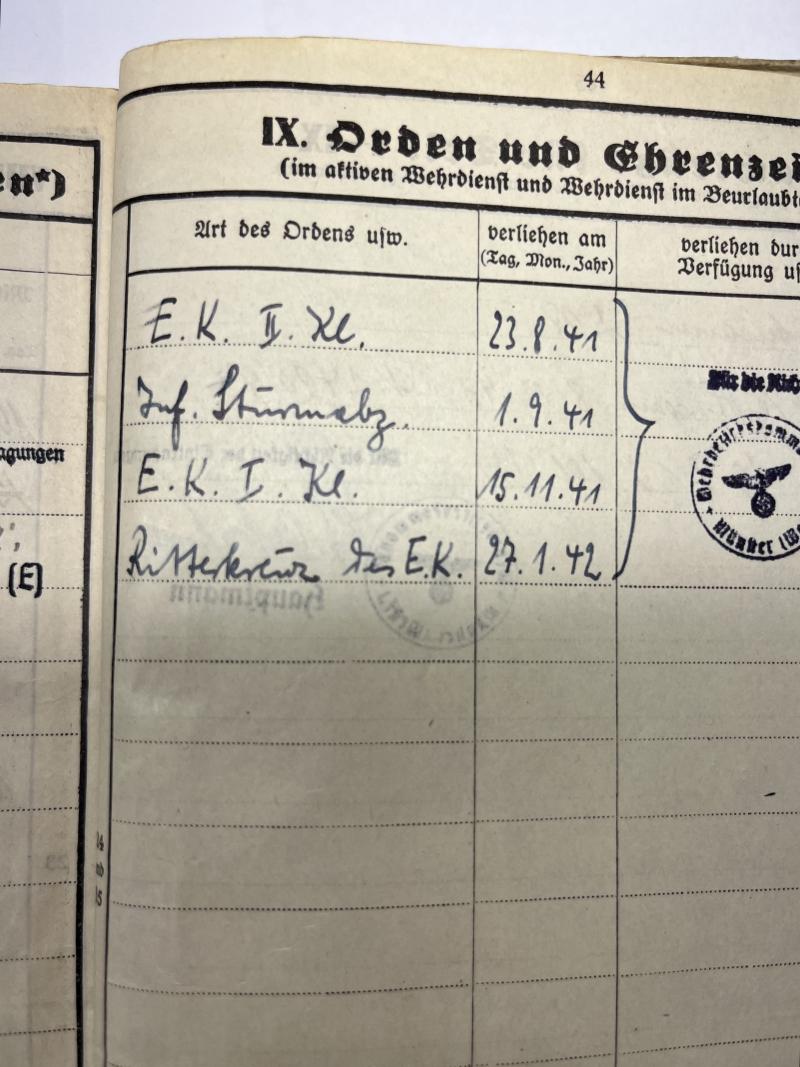 44
en*)
IX. Orden und Ehrenzei
(im aktiven Wehrdienst und Wehrdienst im Beurlaubte
Art des Ordens usw.
verliehen am
(Tag, Mon., Jahr)
verliehen dur
Verfügung us
E. K. II. Kl.
23.8.41
Inf. Sturmabz.
1.9.41
agungen
E. K. I. Kl.
15.11.41
Ritterkreuz des E.K.
27.1.42
(E)
Für die Rich
Hauptmann